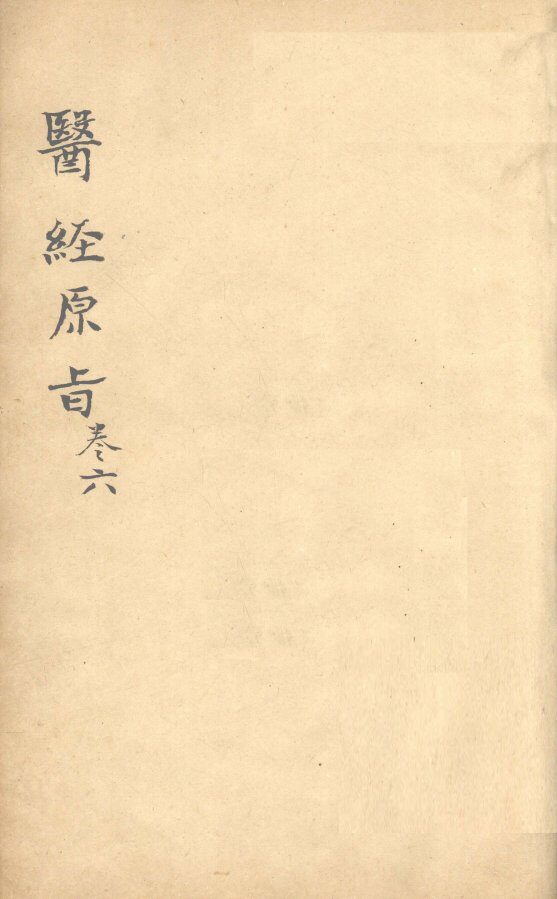 醫経原旨
卷六